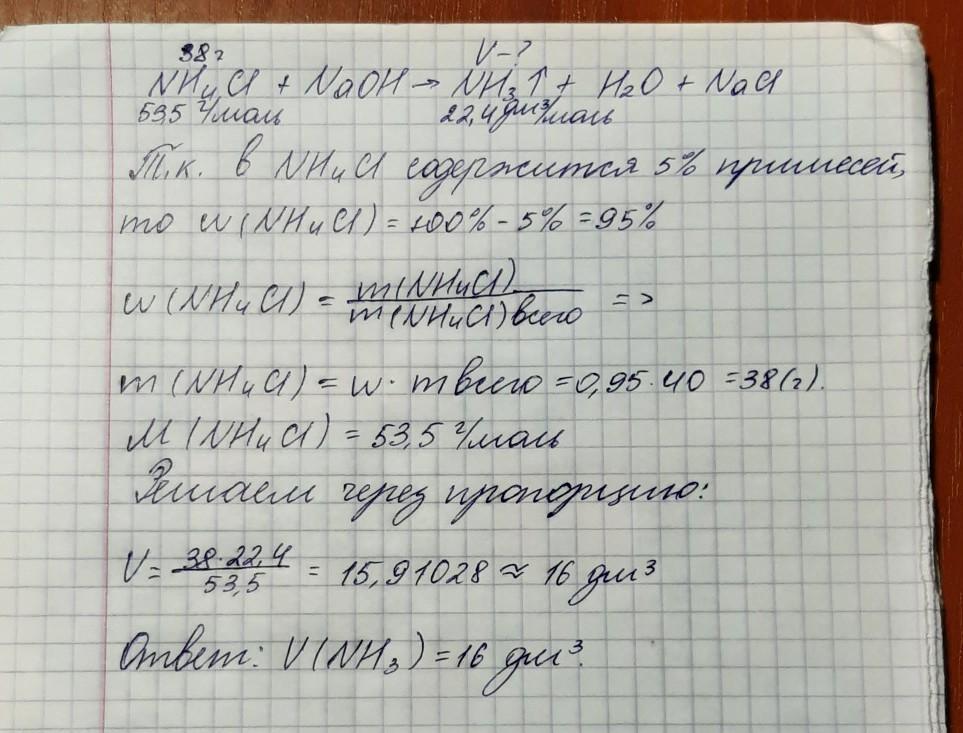 38 г V – ?
NH₄Cl + NaOH → NH₃↑ + H₂O + NaCl
53,5 г/моль 22,4 дм³/моль
Т.к. в NH₄Cl содержится 5% примесей,
то w (NH₄Cl) = 100% - 5% = 95%
w (NH₄Cl) = m(NH₄Cl) / m(NH₄Cl)всего =>
m (NH₄Cl) = w · m всего = 0,95 · 40 = 38 (г).
M (NH₄Cl) = 53,5 г/моль
Решаем через пропорцию:
V = 38·22,4 / 53,5 = 15,91028 ≈ 16 дм³
Ответ: V (NH₃) = 16 дм³.